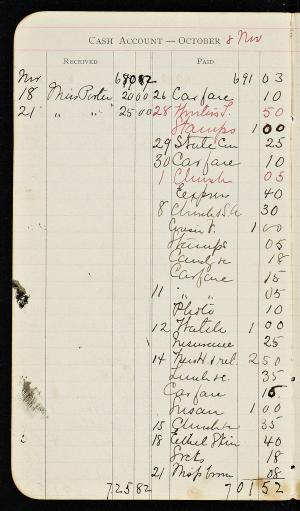 CASH ACCOUNT — OCTOBER & Nov
RECEIVED PAID
Nov 68082 691 03
18 Miss Porter 2000 26 Carfare 10
21 " " 2500 28 50
Stamps 1 00
29 State 25
30 Carfare 10
1 Church 05
Express 40
8 Church & S.S. 30
1 00
Stamps 05
Candy 18
Carfare 15
11 " 05
Photo 10
12 Watch 1 00
Insurance 25
14 2 50
Lunch 35
Carfare 15
Susan 1 00
15 Church 35
18 Ethel 40
18
21 08
72582 701 52